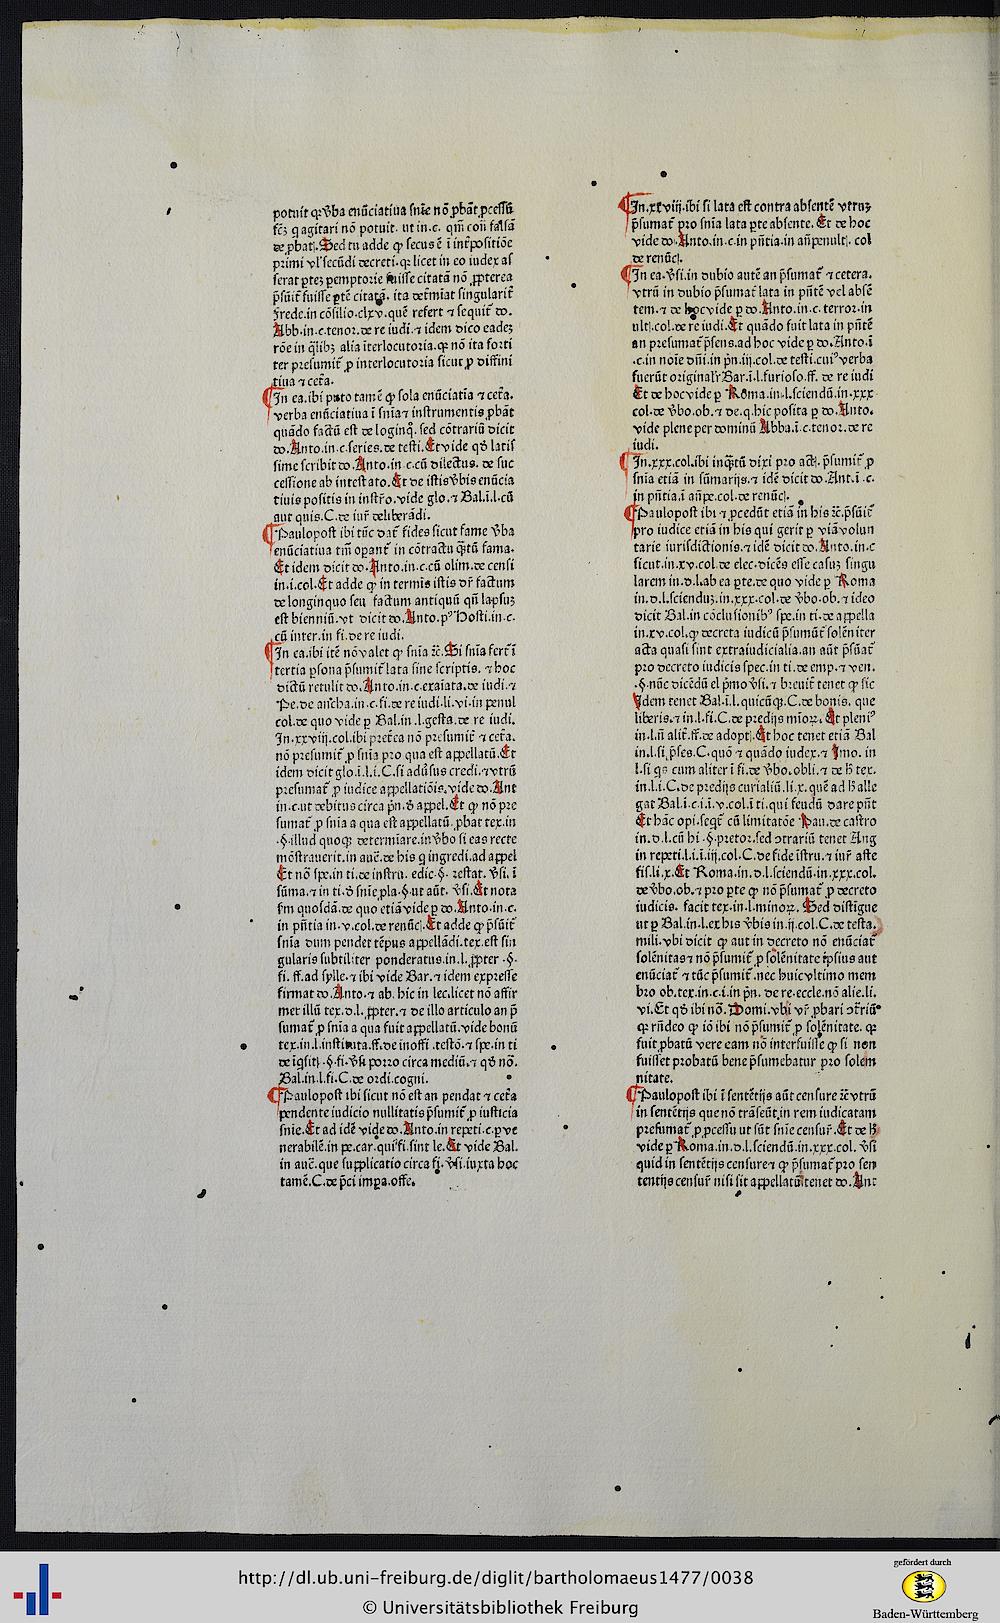 potuit qr v̄ba enūciatiua snīe nō ꝓbāt ꝓcessū
fc̄z q agitari nō potuit. ut in.c. qm̄ con̄ falsā
de ꝓbat. Sed tu adde ꝙ secus ē ī int̄positiōe
primi vl' secūdi decreti. qr licet in eo iudex as
serat ꝑtez ꝑemptorie fuisse citatā nō ꝓpterea
p̄sūit̄ fuisse ꝑtē citatā. ita det̄miat singularit̄
Frede. in cōsilio. clxv. quē refert ⁊ sequit̄ do.
Abb. in.c. tenor. de re iudi. ⁊ idem dico eadez
rōe in q̄libz alia īterlocutoria. ꝙ nō ita forti
ter presumit̄ ꝓ interlocutoria sicut ꝓ diffini
tiua ⁊ cet̄a.
In ea. ibi puto tamē ꝙ sola enūciatīa ⁊ cet̄a.
verba enūciatiua ī snīa ⁊ instrumentis ꝓbāt
quādo factū est de loginq̄. sed cōtrariū dicit
do. Anto. in.c. series. de testi. Et vide qd̄ latis
sime scribit do. Anto. in.c. cū dilectus. de suc
cessione ab intestato. Et de istis v̄bis enūcia
tiuis positis in instr̄o. vide glo. ⁊ Bal. ī.l. cū
aut quis. C. de iur̄ deliberādi.
Paulopost ibi tūc dat̄ fides sicut fame v̄ba
enūciatiua tm̄ oꝑant̄ in cōtractu q̄tū fama.
Et idem dicit do. Anto. in.c. cū olim. de censi
in.i. col. Et adde ꝙ in termīs istis dr̄ factum
de longinquo seu factum antiquū qn̄ lapsuz
est bienniū. vt dicit do. Anto. p⁹ Hosti. in.c.
cū inter. in fi. de re iudi.
In ea. ibi itē nō valet ꝙ snīa ⁊c. Si snīa fert̄ ī
tertia ꝑsona p̄sumit̄ lata sine scriptis. ⁊ hoc
dictū retulit do. Anto. in.c. exaīata. de iudi. ⁊
Pe. de ancha. in.c. fi. de re iudi. li. vi. in penul
col. de quo vide ꝑ Bal. in.l. gesta. de re iudi.
In. xxviij. col. ibi pret̄ea nō presumit̄ ⁊ cet̄a.
nō presumit̄ ꝓ snīa pro qua est appellatū. Et
idem dicit glo. ī.l. i. C. si adūsus credi. ⁊ vtrū
presumat̄ ꝓ iudice appellatiōis. vide do. Ant
in.c. ut debitus circa p̄n. d̄ appel. Et ꝙ nō pre
sumat̄ ꝓ snīa a qua est appellatū. ꝓbat tex. in
.§. illud quoqꝫ determīare. in v̄bo si eas recte
mōstrauerit. in auē. de his q ingredi. ad appel
Et nō spe. in ti. de instru. edic. §. restat. v̄si. ī
sūma. ⁊ in ti. d̄ snīe ꝓla. §. ut aūt. v̄si. Et nota
fm quosdā. de quo etiā vide ꝑ do. Anto. in.c.
in pn̄tia in. v. col. de renūc. Et adde ꝙ p̄sūit̄
snīa dum pendet tēpus appellādi. tex. est sin
gularis subtiliter ponderatus. in.l. ꝓpter. §.
fi. ff. ad sylle. ⁊ ibi vide Bar. ⁊ idem expresse
firmat do. Anto. ⁊ ab. hic in lec. licet nō affir
met illū tex. d.l. ꝓpter. ⁊ de illo articulo an p̄
sumat̄ ꝓ snīa a qua fuit appellatū. vide bonū
tex. in.l. instituta. ff. de inoffi. testō. ⁊ spe. in ti
de īqsit. §. fi. v̄si porro circa mediū. ⁊ qd̄ nō.
Bal. in.l. fi. C. de ordi. cogni.
Paulopost ibi sicut nō est an pendat ⁊ cet̄a
pendente iudicio nullitatis p̄sumit̄ ꝓ iusticia
snīe. Et ad idē vide do. Anto. in repeti. c. ꝑ ve
nerabilē. in pe. car. qui fi. sint le. Et vide Bal.
in auē. que supplicatio circa fi. v̄si. iuxta hoc
tamē. C. de p̄ci impa. offe.
In. xxviij. ibi si lata est contra absentē vtruz
p̄sumat̄ pro snīa lata ꝑte absente. Et de hoc
vide do. Anto. in.c. in pn̄tia. in an̄penult. col
de renūc.
In ea. v̄si. in dubio autē an p̄sumat̄ ⁊ cetera.
vtrū in dubio p̄sumat̄ lata in pn̄tē vel absē
tem. ⁊ de hoc vide ꝑ do. Anto. in.c. terror. in
ult. col. de re iudi. Et quādo fuit lata in pn̄tē
an presumat̄ p̄sens. ad hoc vide ꝑ do. Anto. ī
.c. in noīe dn̄i. in p̄n. iij. col. de testi. cui⁹ verba
fuerūt original'r Bar. ī.l. furioso. ff. de re iudi
Et de hoc vide ꝑ Roma. in.l. sciendū. in. xxx
col. de v̄bo. ob. ⁊ de. q. hic posita ꝑ do. Anto.
vide plene per dominū Abba. ī.c. tenor. de re
iudi.
In. xxx. col. ibi inq̄tū dixi pro act. p̄sumit̄ ꝓ
snīa etiā in sūmarijs. ⁊ idē dicit do. Ant. ī.c.
in pn̄tia. ī an̄pe. col. de renūc.
Paulopost ibi ⁊ ꝓcedūt etiā in his ⁊c. p̄sūit̄
pro iudice etiā in his qui gerit ꝑ viā volun
tarie iurisdictionis. ⁊ idē dicit do. Anto. in.c
sicut. in. xv. col. de elec. dicēs esse casuz singu
larem in. d.l. ab ea ꝑte. de quo vide ꝑ Roma
in. d.l. scienduz. in. xxx. col. de v̄bo. ob. ⁊ ideo
dicit Bal. in cōclusionib⁹ spe. in ti. de appella
in. xv. col. ꝙ decreta iudicū p̄sumūt̄ solēniter
acta quasi sint extraiudicialia. an aūt p̄sūat̄
pro decreto iudicis spec. in ti. de emp. ⁊ ven.
.§. nūc dicēdū el p̄mo v̄si. ⁊ breuit̄ tenet ꝙ sic
Idem tenet Bal. ī.l. quicūqꝫ. C. de bonis. que
liberis. ⁊ in.l. fi. C. de predijs mīoꝝ. Et pleni⁹
in.l. ī alit̄. ff. de adopt. Et hoc tenet etiā Bal
in.l. si p̄ses. C. quō ⁊ quādo iudex. ⁊ Imo. in
l. si qs cum aliter ī fi. de v̄bo. obli. ⁊ de h̄ tex.
in.l. i. C. de predijs curialiū. li. x. quē ad h̄ alle
gat Bal. ī.c. i. ī. v. col. ī ti. qui feudū dare pn̄t
Et hāc opi. seqt̄ cū limitatōe Pau. de castro
in. d.l. cū hi. §. pretor. sed ↄtrariū tenet Ang
in repeti. l. i. ī. iij. col. C. de fide īstru. ⁊ iur̄ aste
fis. li. x. Et Roma. in. d.l. sciendū. in. xxx. col.
de v̄bo. ob. ⁊ pro ꝑte ꝙ nō p̄sumat̄ ꝓ decreto
iudicis. facit tex. in.l. minoꝝ. Sed distīgue
ut ꝑ Bal. in.l. ex his v̄bis in. ij. col. C. de testa.
mili. vbi dicit ꝙ aut in decreto nō enūciat̄
solēnitas ⁊ nō p̄sumit̄ ꝓ solēnitate ip̄sius aut
enūciat̄ ⁊ tūc p̄sumit̄. nec huic vltimo mem
bro ob. tex. in.c. i. in p̄n. de re. eccle. nō alie. li.
vi. Et qd̄ ibi nō. Domi. vbi vr̄ ꝓbari ↄt̄riū
qr rn̄deo ꝙ iō ibi nō p̄sumit̄ ꝓ solēnitate. qr
fuit ꝓbatū vere eam nō interfuisse ꝙ si non
fuisset probatū bene p̄sumebatur pro solem
nitate.
Paulopost ibi ī sentētijs aūt censure ⁊c vtrū
in sentētijs que nō trāseūt in rem iudicatam
presumat̄ ꝓ ꝓcessu ut sūt snīe censur̄. Et de h̄
vide ꝑ Roma. in. d.l. sciendū. in. xxx. col. v̄si
quid in sentētijs censure ⁊ ꝙ p̄sumat̄ pro sen
tentijs censur̄ nisi sit appellatū tenet do. Ant
http://dl.ub.uni-freiburg.de/diglit/bartholomaeus1477/0038
© Universitätsbibliothek Freiburg
gefördert durch
Baden-Württemberg